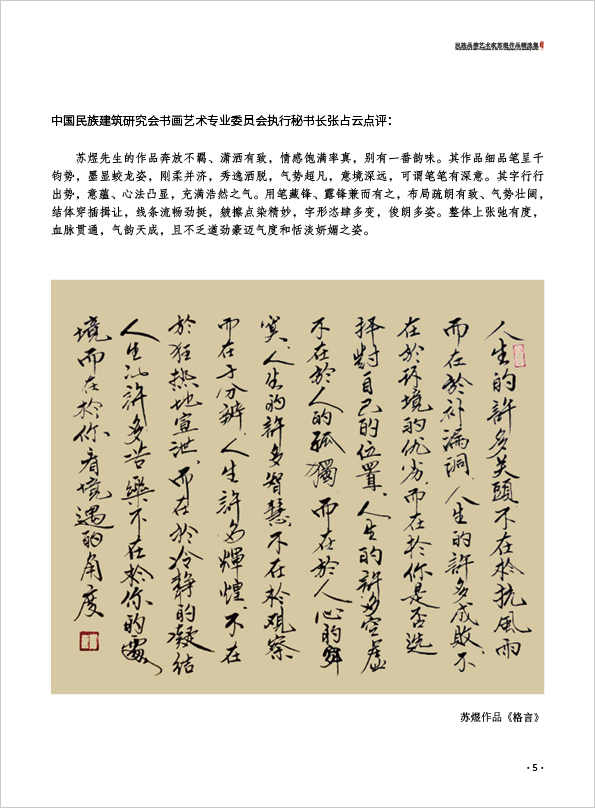 民族品牌艺术家苏煜作品精选集
中国民族建筑研究会书画艺术专业委员会执行秘书长张占云点评：
苏煜先生的作品奔放不羁、潇洒有致，情感饱满率真，别有一番韵味。其作品细品笔呈千
钧势，墨显蛟龙姿，刚柔并济，秀逸洒脱，气势超凡，意境深远，可谓笔笔有深意。其字行行
出势，意蕴、心法凸显，充满浩然之气。用笔藏锋、露锋兼而有之，布局疏朗有致、气势壮阔，
结体穿插揖让，线条流畅劲挺，皴擦点染精妙，字形恣肆多变，俊朗多姿。整体上张弛有度，
血脉贯通，气韵天成，且不乏遒劲豪迈气度和恬淡妍媚之姿。
人生的許多关頭不在於抗風雨
而在於补漏洞.人生的許多成敗.不
在於环境的优劣.而在於你是否选
择對自己的位置.人生的許多空虚
不在於人的孤獨.而在於人心的
寞.人生的許多智慧.不在於觀察
而在于分辨.人生許多輝煌.不在
於狂热地宣泄.而在於冷静的凝结
人生的許多苦樂不在於你的處
境而在於你看境遇的角度
苏煜作品《格言》
·5·